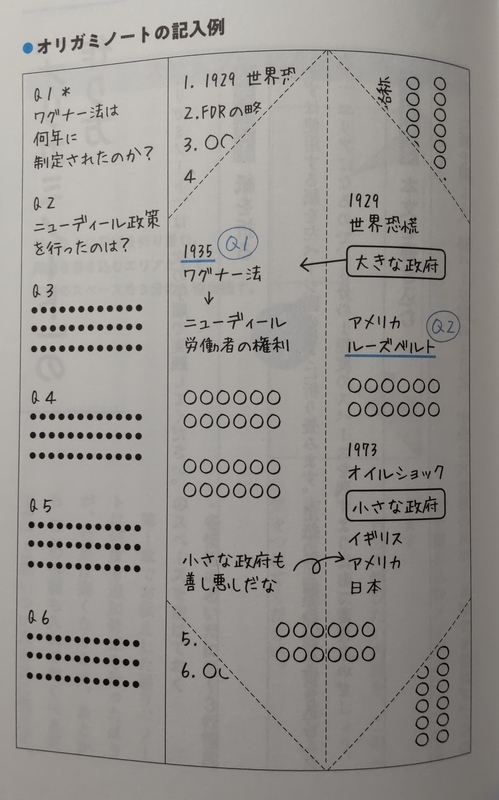 ●オリガミノートの記入例
Q1 *
ワグナー法は
何年に
制定されたのか?
Q2
ニューディール政策
を行ったのは?
Q3
●●●●●●●●●●●●
●●●●●●●●●●●●
●●●●●●●●●●●●
Q4
●●●●●●●●●●●●
●●●●●●●●●●●●
●●●●●●●●●●●●
Q5
●●●●●●●●●●●●
●●●●●●●●●●●●
●●●●●●●●●●●●
Q6
●●●●●●●●●●●●
●●●●●●●●●●●●
●●●●●●●●●●●●
1. 1929 世界恐
2. FDRの略
3. ○○
4
1935 Q1
ワグナー法
↓
ニューディール
労働者の権利
○○○○○○
○○○○○○
○○○○○○
○○○○○○
小さな政府も
善し悪しだな
5.
6. ○○
○○○○○○
○○○○○○
1929
世界恐慌
← 大きな政府
アメリカ Q2
ルーズベルト
○○○○○○
○○○○○○
1973
オイルショック
小さな政府
イギリス
アメリカ
日本